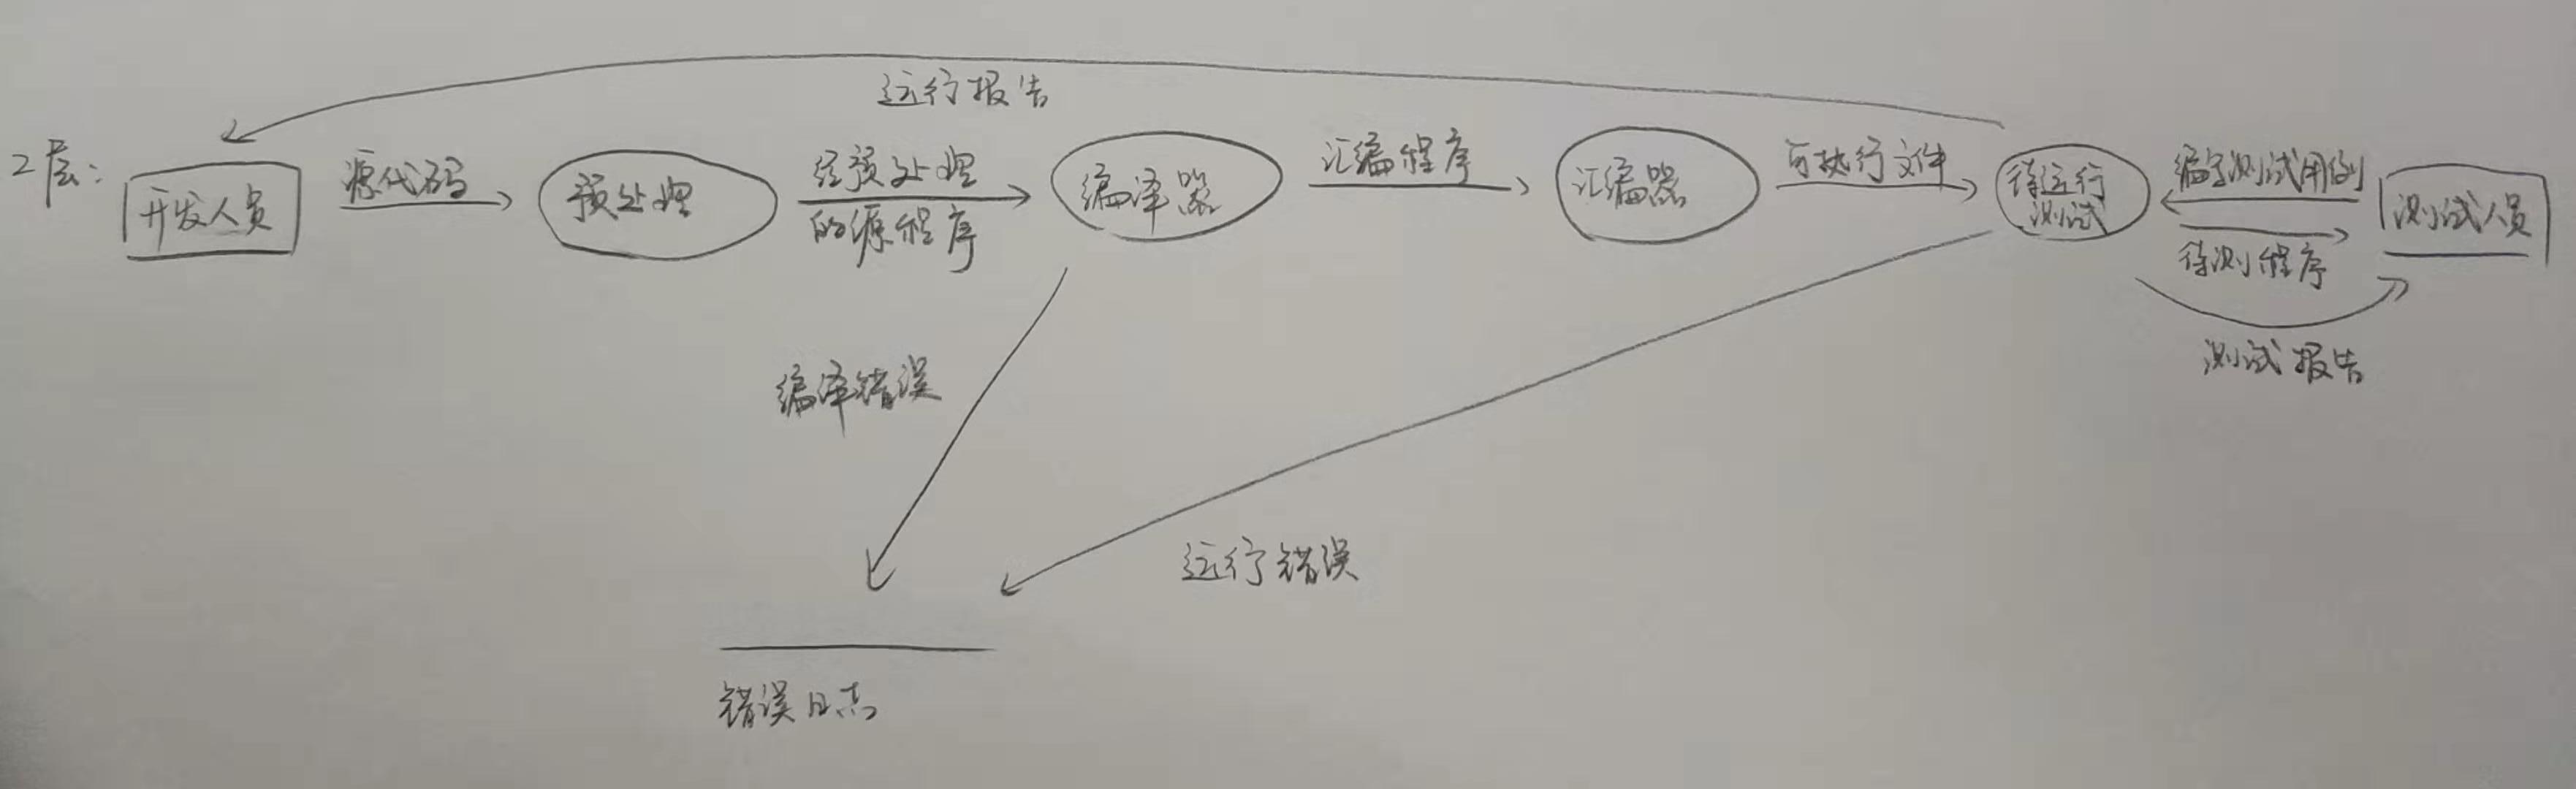 运行报告
2层:
开发人员
源代码
预处理
经预处理
的源程序
编译器
汇编程序
汇编器
可执行文件
待运行
测试
编写测试用例
待测程序
测试人员
测试报告
编译错误
运行错误
错误日志